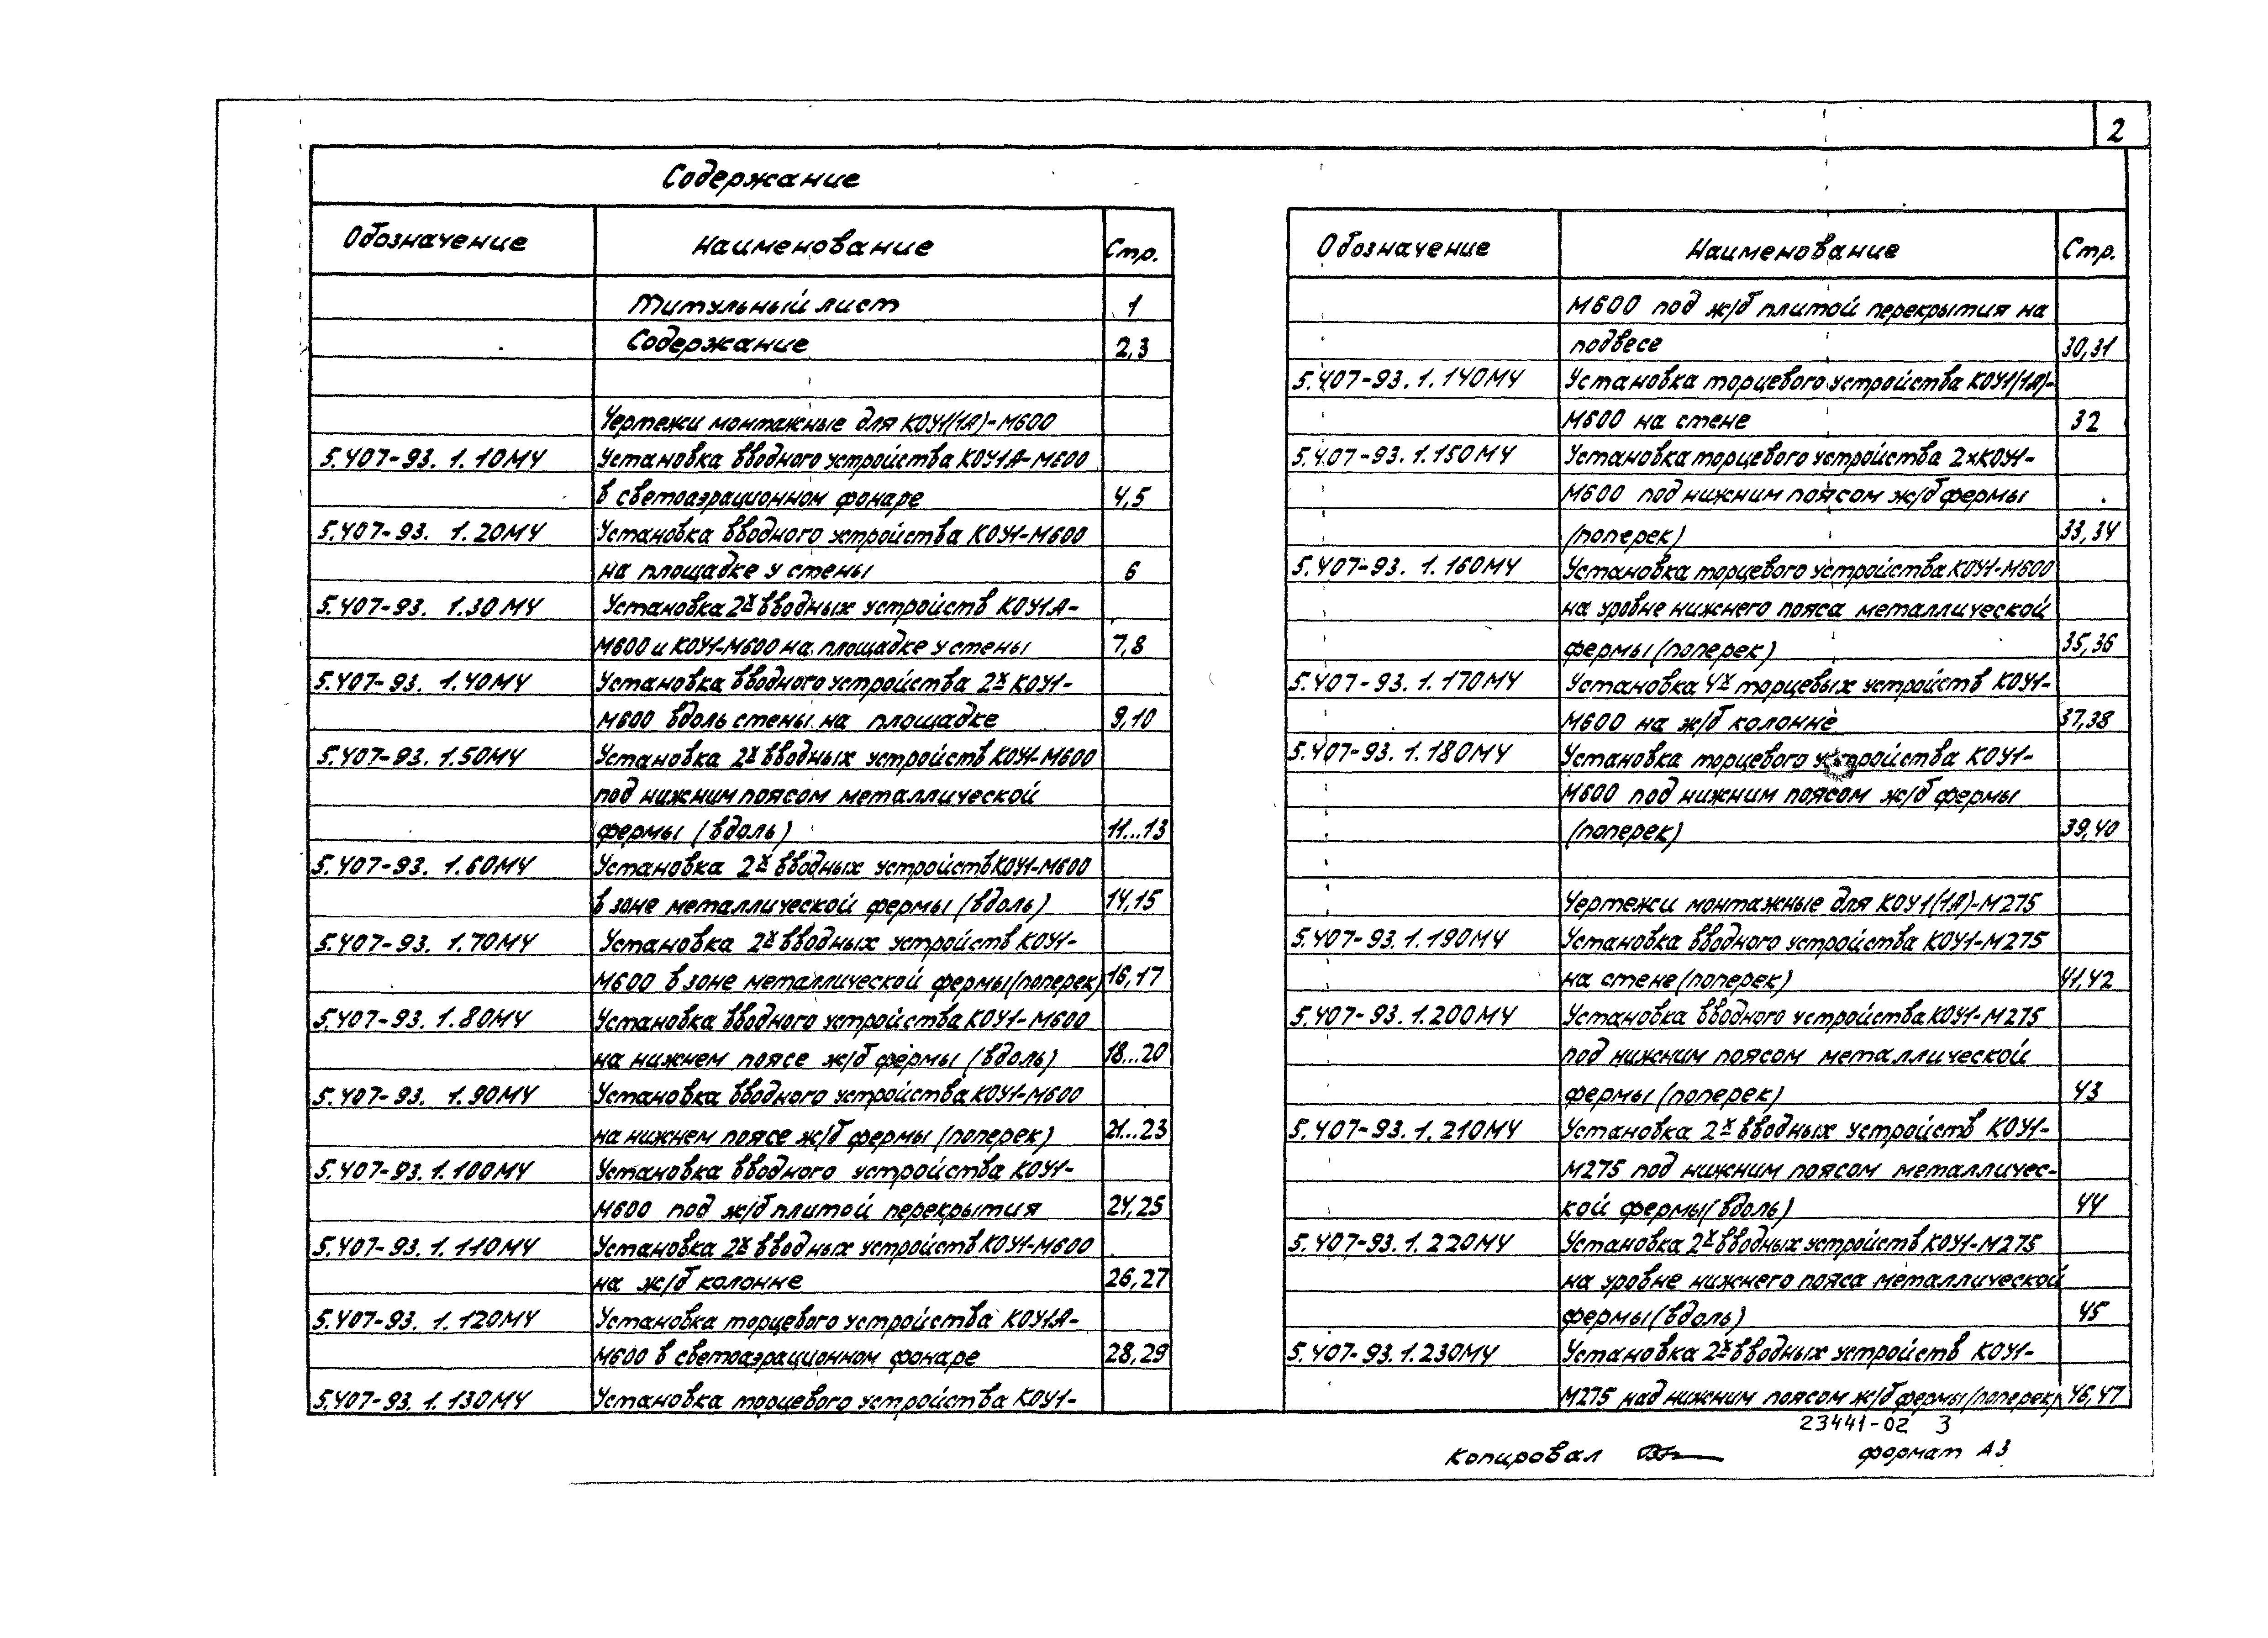 2
Содержание
Обозначение Наименование Стр.
Титульный лист 1
Содержание 2,3
Чертежи монтажные для КОУ1(1А)-М600
5.407-93. 1. 10МЧ Установка вводного устройства КОУ1А-М600
в светоаэрационном фонаре 4,5
5.407-93. 1. 20МЧ Установка вводного устройства КОУ1-М600
на площадке у стены 6
5.407-93. 1.30МЧ Установка 2х вводных устройств КОУ1А-
М600 и КОУ1-М600 на площадке у стены 7,8
5.407-93. 1.40МЧ Установка вводного устройства 2х КОУ1-
М600 вдоль стены на площадке 9,10
5.407-93. 1.50МЧ Установка 2х вводных устройств КОУ1-М600
под нижним поясом металлической
фермы (вдоль) 11...13
5.407-93. 1.60МЧ Установка 2х вводных устройств КОУ1-М600
в зоне металлической фермы (вдоль) 14,15
5.407-93. 1.70МЧ Установка 2х вводных устройств КОУ1-
М600 в зоне металлической фермы (поперек) 16,17
5.407-93. 1.80МЧ Установка вводного устройства КОУ1-М600
на нижнем поясе ж/б фермы (вдоль) 18...20
5.407-93. 1.90МЧ Установка вводного устройства КОУ1-М600
на нижнем поясе ж/б фермы (поперек) 21...23
5.407-93. 1. 100МЧ Установка вводного устройства КОУ1-
М600 под ж/б плитой перекрытия 24,25
5.407-93. 1. 110МЧ Установка 2х вводных устройств КОУ1-М600
на ж/б колонне 26,27
5.407-93. 1. 120МЧ Установка торцевого устройства КОУ1А-
М600 в светоаэрационном фонаре 28,29
5.407-93. 1. 130МЧ Установка торцевого устройства КОУ1-
Обозначение Наименование Стр.
М600 под ж/б плитой перекрытия на
подвесе 30,31
5.407-93. 1. 140МЧ Установка торцевого устройства КОУ1(1А)-
М600 на стене 32
5.407-93. 1. 150МЧ Установка торцевого устройства 2хКОУ1-
М600 под нижним поясом ж/б фермы
(поперек) 33,34
5.407-93. 1. 160МЧ Установка торцевого устройства КОУ1-М600
на уровне нижнего пояса металлической
фермы (поперек) 35,36
5.407-93. 1. 170МЧ Установка 4х торцевых устройств КОУ1-
М600 на ж/б колонне 37,38
5.407-93. 1. 180МЧ Установка торцевого устройства КОУ1-
М600 под нижним поясом ж/б фермы
(поперек) 39,40
Чертежи монтажные для КОУ1(1А)-М275
5.407-93. 1. 190МЧ Установка вводного устройства КОУ1-М275
на стене (поперек) 41,42
5.407-93. 1.200МЧ Установка вводного устройства КОУ1-М275
под нижним поясом металлической
фермы (поперек) 43
5.407-93. 1. 210МЧ Установка 2х вводных устройств КОУ1-
М275 под нижним поясом металличес-
кой фермы (вдоль) 44
5.407-93. 1. 220МЧ Установка 2х вводных устройств КОУ1-М275
на уровне нижнего пояса металлической
фермы (вдоль) 45
5.407-93. 1.230МЧ Установка 2х вводных устройств КОУ1-
М275 над нижним поясом ж/б фермы (поперек) 46,47
23441-02 3
Копировал формат А3